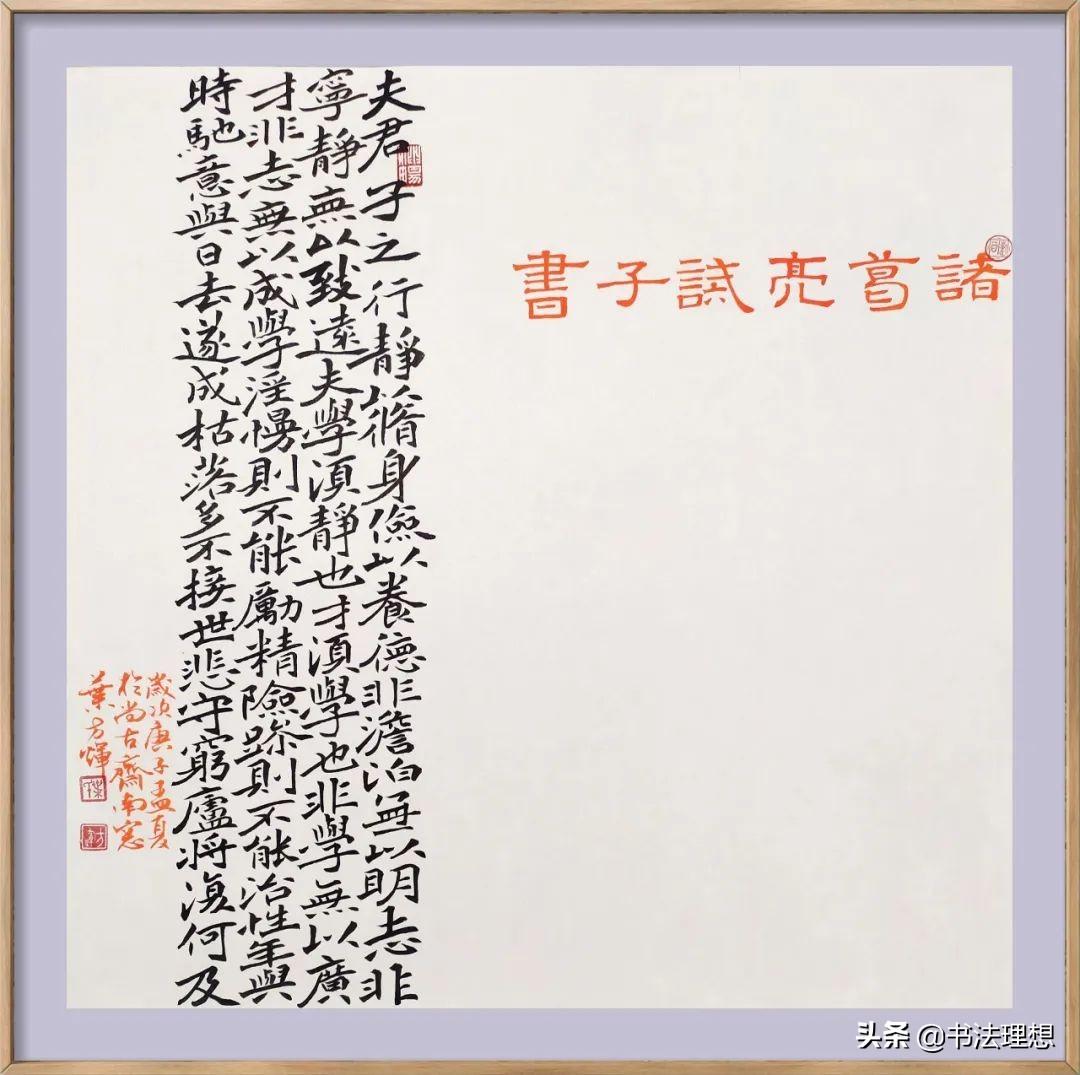 諸葛亮誡子書
夫君子之行靜以脩身儉以養德非澹泊無以明志非
寧靜無以致遠夫學須靜也才須學也非學無以廣
才非志無以成學淫慢則不能勵精險躁則不能治性年與
時馳意與日去遂成枯落多不接世悲守窮廬將復何及
歲次庚子孟夏
於尚古齋南窓
葉方煇
头条 @书法理想